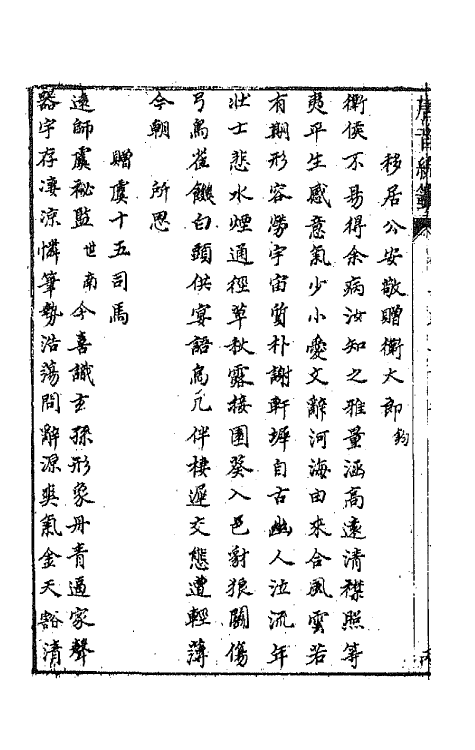 唐音統籤
移居公安敬贈衛大郎鈞
衛侯不易得余病汝知之雅量涵高遠清襟照等
夷平生感意氣少小愛文辭河海由來合風雲若
有期形容勞宇宙質朴謝軒墀自古幽人泣流年
壯士悲水煙通徑草秋露接園葵入邑豺狼鬬傷
弓鳥雀饑白頭供宴語烏几伴棲遲交態遭輕薄
今朝 所思
贈虞十五司馬
遠師虞秘監世南今喜識玄孫形象丹青逼家聲
器宇存凄涼憐筆勢浩蕩問辭源爽氣金天豁清